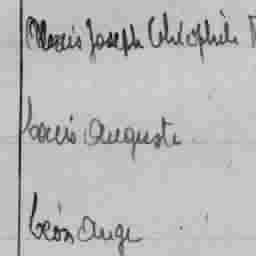 Alexis Joseph Théophile
Louis Auguste
Léon Ange